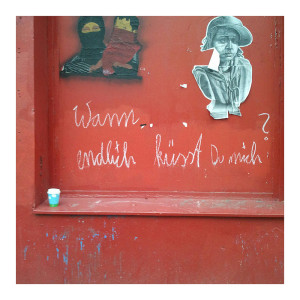 Wann..
endlich küsst Du mich?